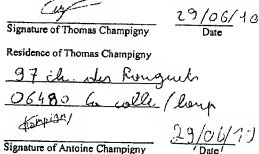 29/06/10
Signature of Thomas Champigny Date
Residence of Thomas Champigny
97 ch. des Rouguets
06480 La colle/loup
29/06/10
Signature of Antoine Champigny Date